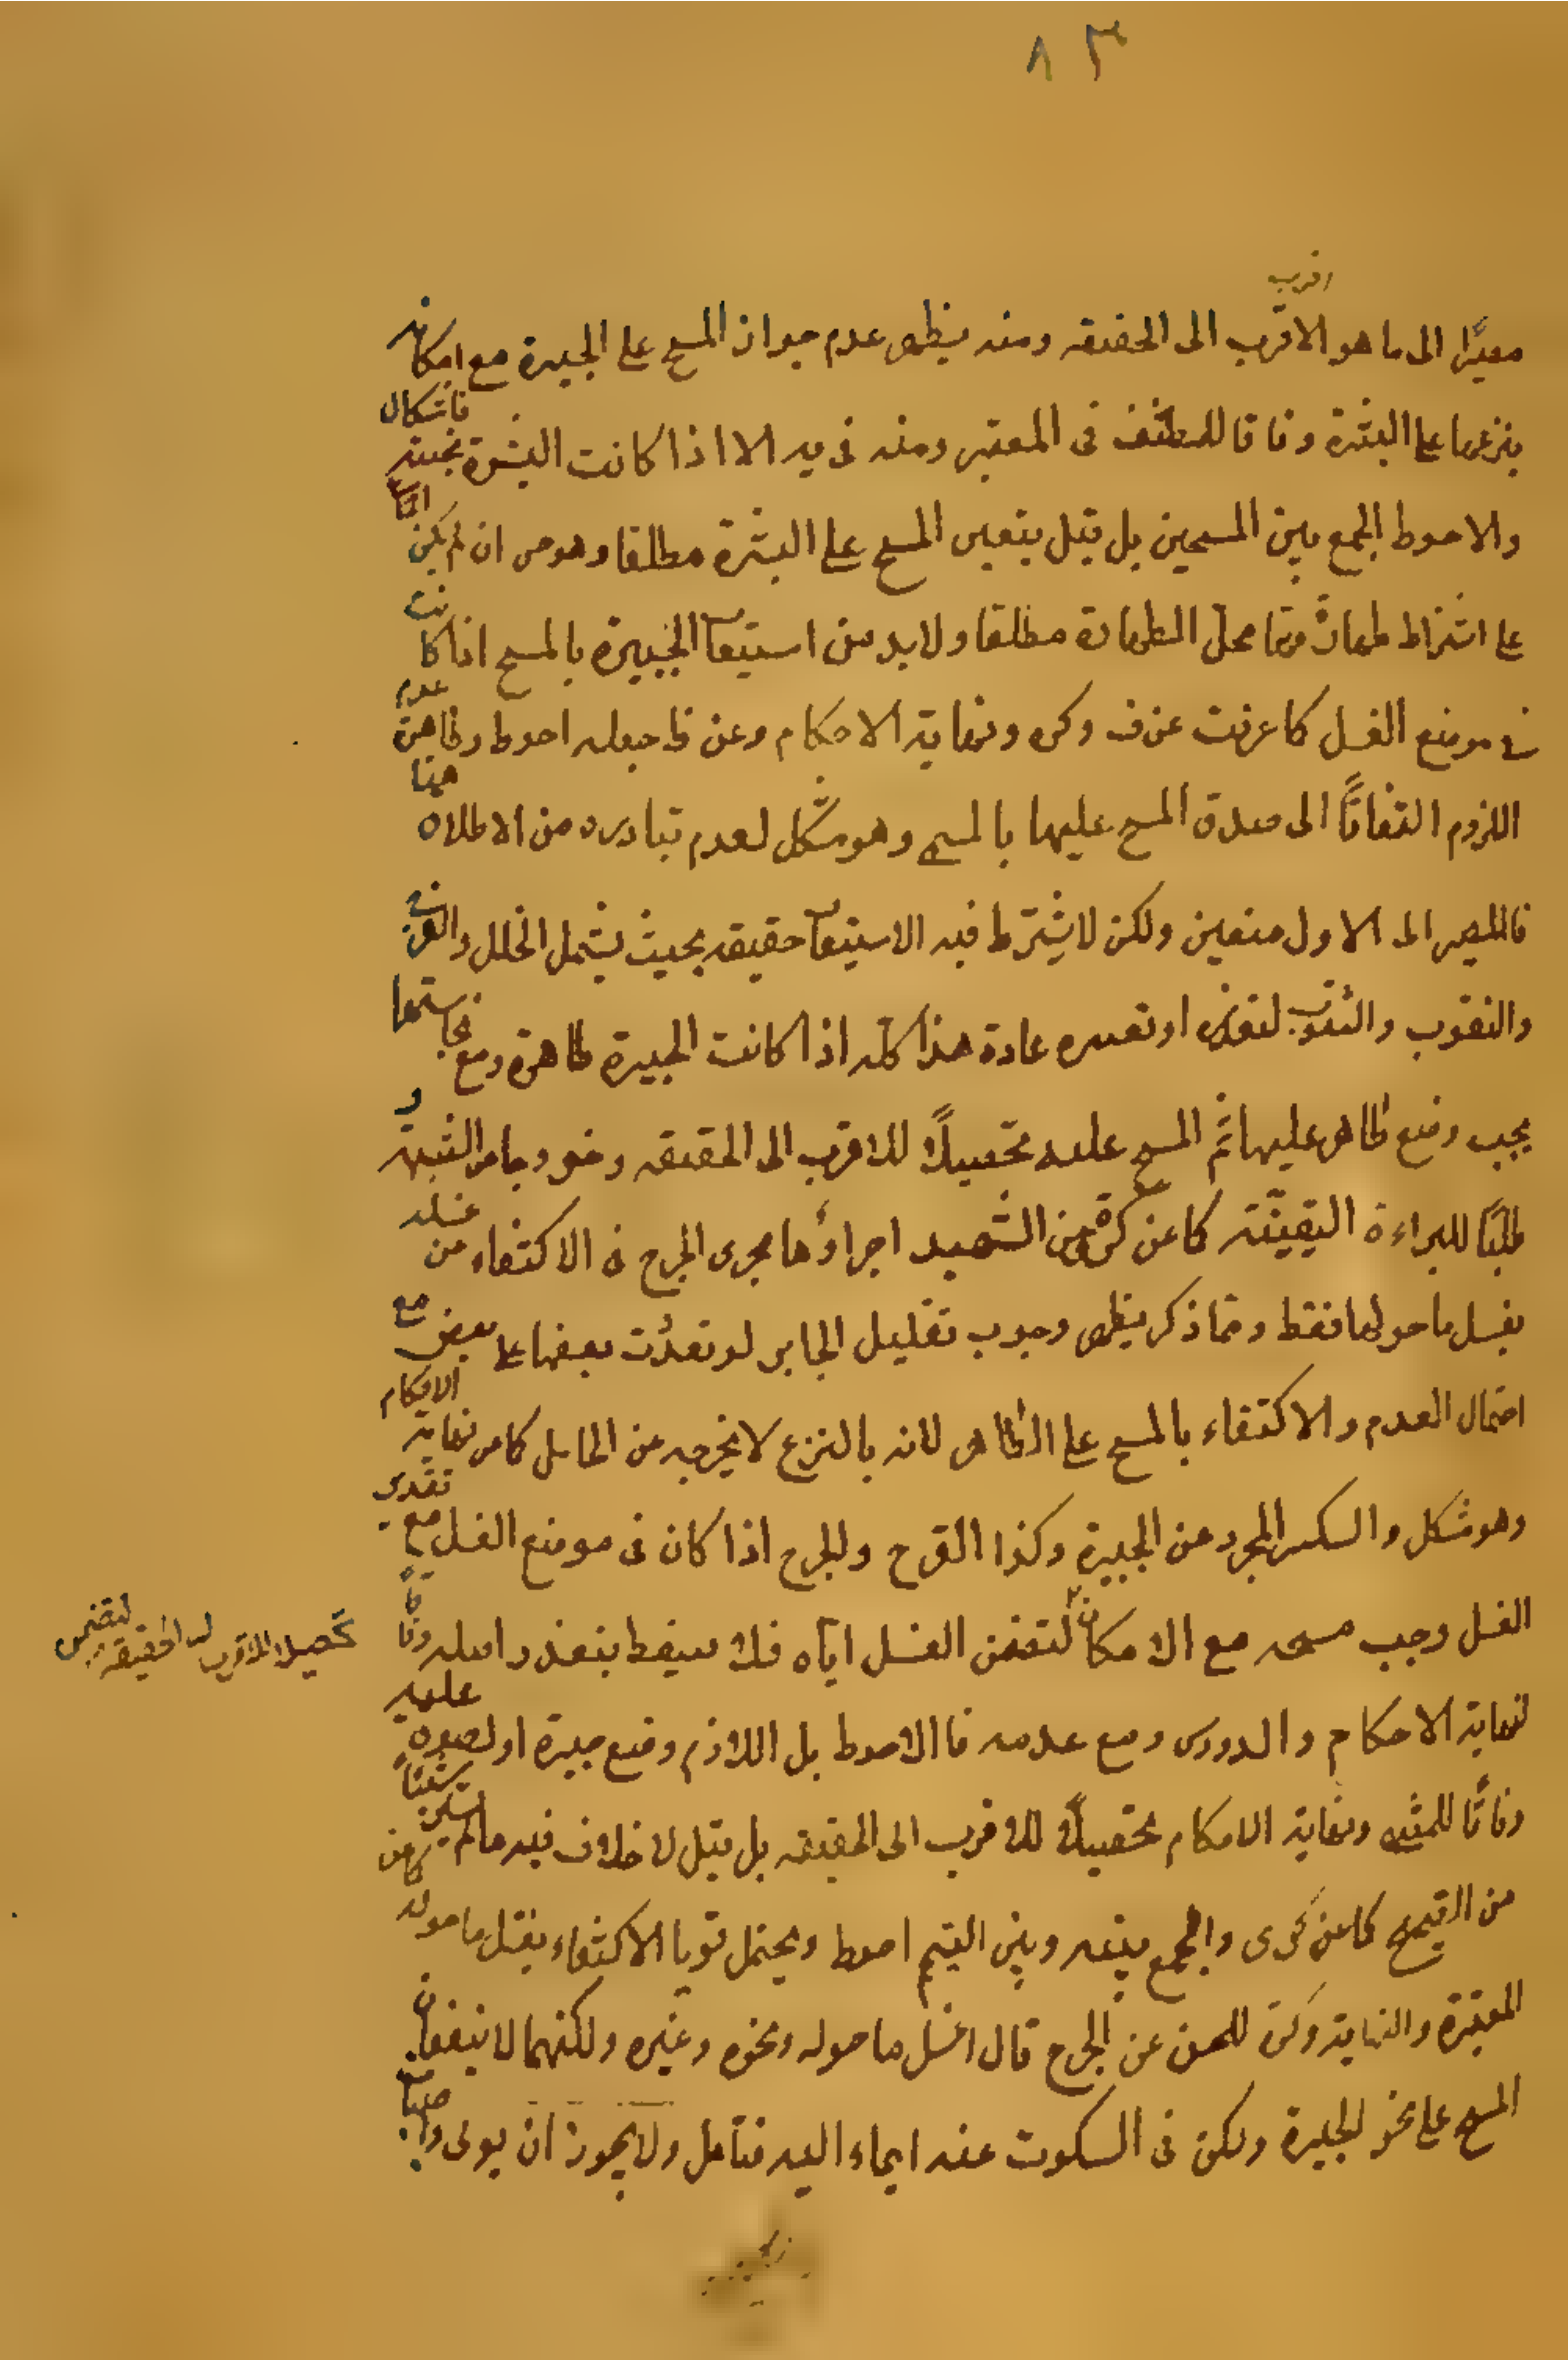 ٨٣
اقرب
مصيرًا الى ما هو الاقرب الى الحقيقه ومنه يظهر عدم جواز المسح على الجبيرة مع امكان
نزعها على البشرة وفاقا للمصنف فى المعتبر ومنه فى يد الا اذا كانت البشرة نجسته فاشكال
والاحوط الجمع بين المسحين بل قيل يتعين المسح على البشرة مطلقا وهو حسن ان لم يكن
على اشتراط طهارة محل الطهارة مطلقا ولا بد من استيعاب الجبيرة بالمسح اذا كانت
فى موضع الغسل كما عرفت عن ف وكره ونهاية الاحكام وعن ط جعله احوط وظاهره عدم
اللزوم التفاتًا الى صدق المسح عليها بالمسح وهو مشكل لعدم تبادره من الاطلاق هيهنا
فالمصير الى الاول متعين ولكن لا يشترط فيه الاستيعاب حقيقه بحيث يشمل الخلل والفرج
والنقوب والثقوب لتعذره او تعسره عادة هذا كله اذا كانت الجبيرة طاهرة ومع نجاستها
يجب وضع طاهر عليها ثم المسح عليه تحصيلًا للاقرب الى الحقيقه وخروجا من الشبهة و
طلبًا للبراءة اليقينيّة كما عن كره وعن الشهيد اجراؤها مجرى الجرح فى الاكتفاء عن غسله
بغسل ما حولها فقط ومما ذكر يظهر وجوب تقليل الجبائر لو تعددت بعضها على بعض مع
احتمال العدم والاكتفاء بالمسح على الظاهر لانه بالنزع لا يخرجه عن الحائل كما عن نهاية الاحكام
وهو مشكل والكسر المجرد عن الجبيرة وكذا القرح والجرح اذا كان فى موضع الغسل مع تعذر
الغسل وجب مسحه مع الامكان لتضمن الغسل اياه فلا يسقط بتعذر اصله وفاقًا
تحصيلا للاقرب الى الحقيقه لتضمن
لنهاية الاحكام والدروس ومع عدمه فالاحوط بل اللازم وضع جبيرة او لصوق عليه
وفاقًا للمشهور ونهاية الاحكام تحصيلًا للاقرب الى الحقيقه بل قيل لا خلاف فيه ما لم يستر شيئًا
من الصحيح كما عن كرى والجمع بينه وبين التيمم احوط ويحتمل قويا الاكتفاء بغسل ما حوله كما عن
المعتبرة والنهاية وكره للحسن عن الجرح قال اغسل ما حوله ونحوه وغيره ولكنهما لا ينفيان
المسح على نحو الجبيرة ولكن فى السكوت عنه ايماء اليه فتامل ولا يجوز ان يولى